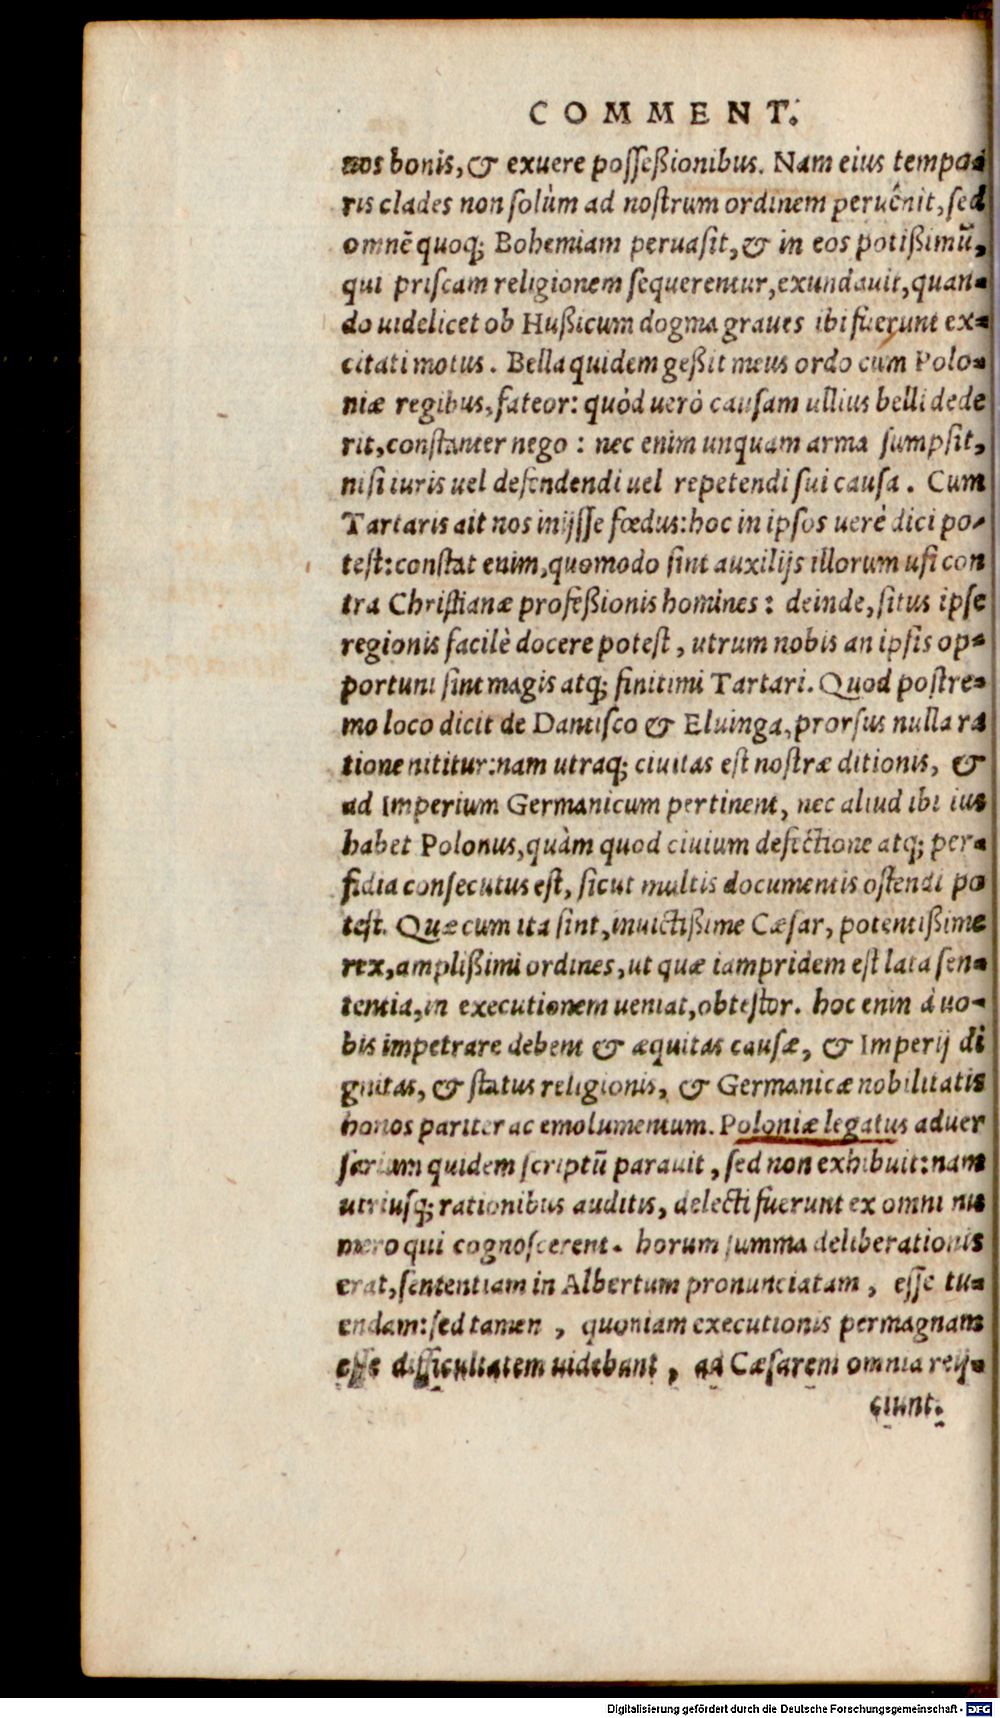 COMMENT.
nos bonis, & exuere posseßionibus. Nam eius tempo-
ris clades non solùm ad nostrum ordinem peruênit, sed
omnē quoq; Bohemiam peruasit, & in eos potißimū,
qui priscam religionem sequerentur, exundauit, quan-
do uidelicet ob Hußicum dogma graues ibi fuerunt ex-
citati motus. Bella quidem geßit meus ordo cum Polo-
niæ regibus, fateor: quòd uerò causam ullius belli dede
rit, constanter nego: nec enim unquam arma sumpsit,
nisi iuris uel defendendi uel repetendi sui causa. Cum
Tartaris ait nos inijsse fœdus: hoc in ipsos uerè dici po-
test: constat enim, quomodo sint auxilijs illorum usi con
tra Christianæ profeßionis homines: deinde, situs ipse
regionis facilè docere potest, utrum nobis an ipsis op-
portuni sint magis atq; finitimi Tartari. Quod postre-
mo loco dicit de Dantisco & Eluinga, prorsus nulla ra
tione nititur: nam utraq; ciuitas est nostræ ditionis, &
ad Imperium Germanicum pertinent, nec aliud ibi ius
habet Polonus, quàm quod ciuium defectione atq; per-
fidia consecutus est, sicut multis documentis ostendi po
test. Quæ cum ita sint, inuictißime Cæsar, potentißime
rex, amplißimi ordines, ut quæ iampridem est lata sen-
tentia, in executionem ueniat, obtestor. hoc enin à uo-
bis impetrare debent & æquitas causæ, & Imperij di
gnitas, & status religionis, & Germanicæ nobilitatis
honos pariter ac emolumentum. Poloniæ legatus aduer
sarium quidem scriptū parauit, sed non exhibuit: nam
utriusq; rationibus auditis, delecti fuerunt ex omni nu
mero qui cognoscerent. horum summa deliberationis
erat, sententiam in Albertum pronunciatam, esse tu-
endam: sed tamen, quoniam executionis permagnam
esse difficultatem uidebant, ad Cæsarem omnia reij-
ciunt.
Digitalisierung gefördert durch die Deutsche Forschungsgemeinschaft - DFG